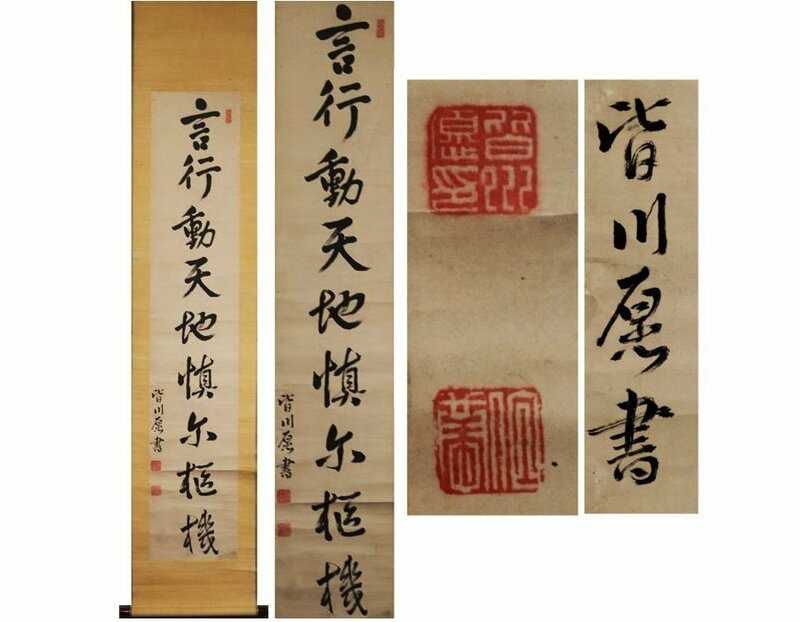 言行動天地慎尓樞機
皆川愿書
言行動天地慎尓樞機
皆川愿書
皆川
愿印
皆川愿書